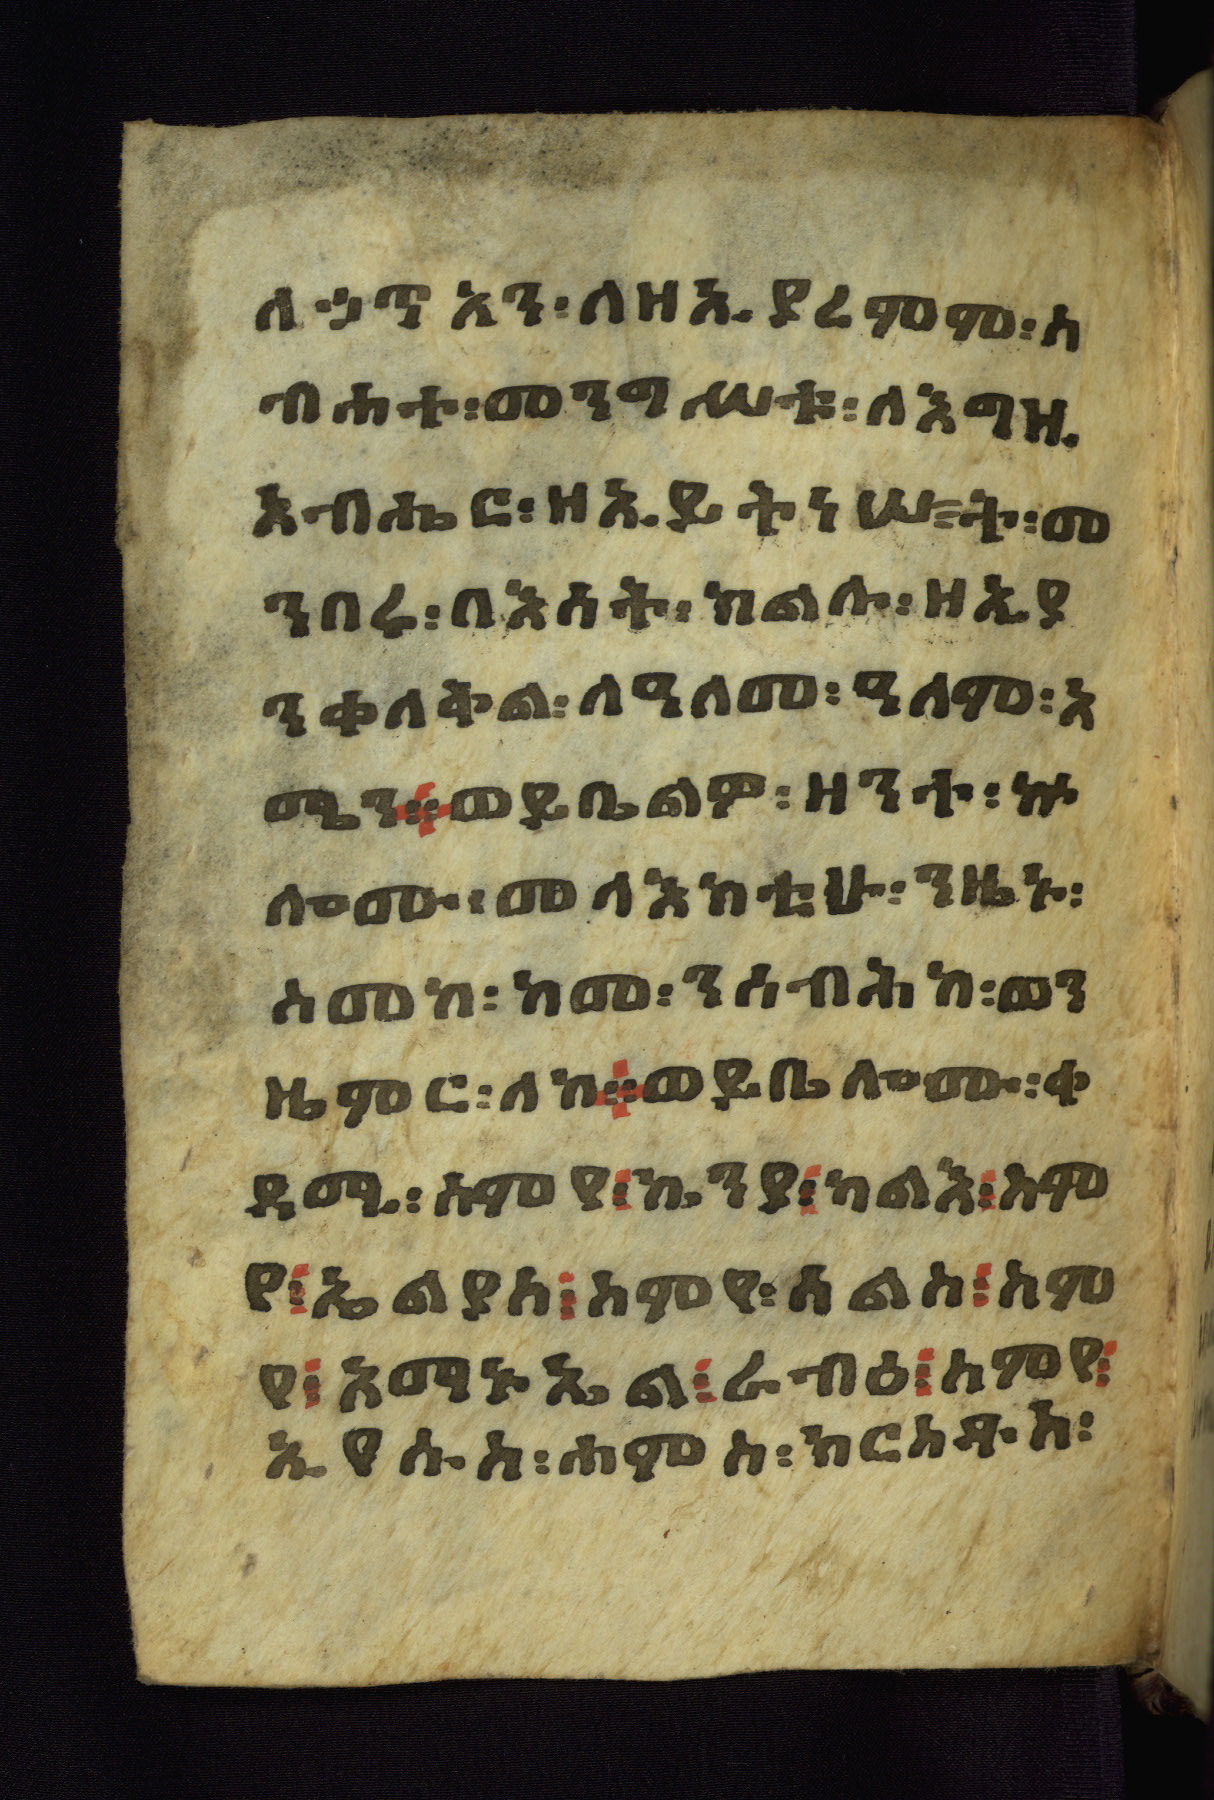 ለኃጥአን፡ለዘኢያረምም፡ስ
ብሐተ፡መንግሠቱ፡ለእግዚ
እብሔር፡ዘኢይትነሠት፡መ
ንበሩ፡በእሳት፡ክልሉ፡ዘኢያ
ንቀለቅል፡ለዓለመ፡ዓለም፡አ
ሜን።ወይቤልዎ፡ዘንተ፡ኵ
ሎሙ፡መላእክቲሁ፡ንዜኑ፡
ስመከ፡ከመ፡ንሰብሕከ፡ወን
ዜምር፡ለከ።ወይቤሎሙ፡ቀ
ዳሚ፡ስምየ፡ኬንያ፡ካልእ፡ስም
የ፡ኤልያስ፡ስምየ፡ሳልስ፡ስም
የ፡አማኑኤል፡ራብዕ፡ስምየ፡
ኢየሱስ፡ሐምስ፡ክርስቶስ፡